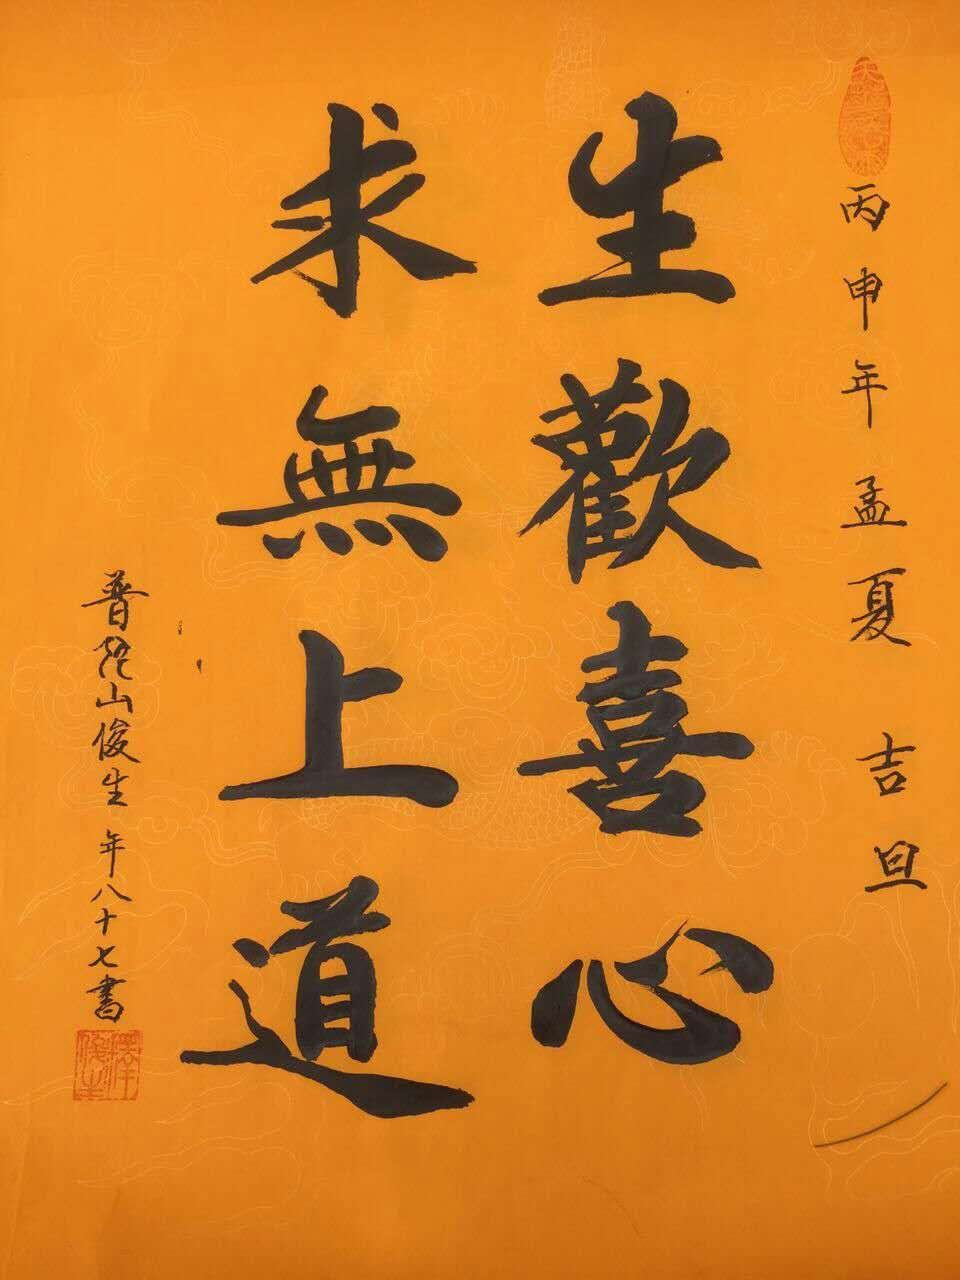 丙申年孟夏 吉旦
生歡喜心
求無上道
普陀山俊生 年八十七書